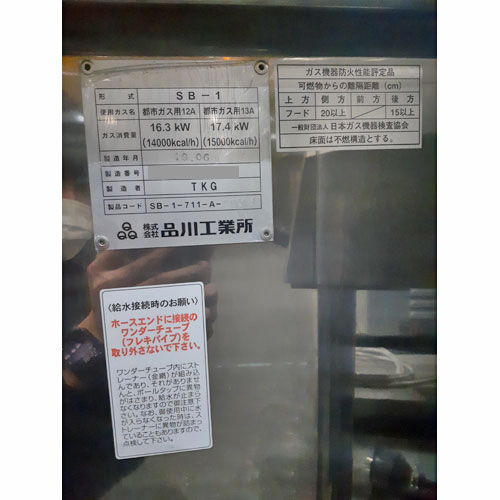 形式 SB-1
使用ガス名 都市ガス用12A 都市ガス用13A
ガス消費量 16.3 kW 17.4 kW
(14000kcal/h) (15000kcal/h)
製造年月 19.06
製造番号
製造者 TKG
製品コード SB-1-711-A-
株式会社 品川工業所
ガス機器防火性能評定品
可燃物からの離隔距離(cm)
上方 側方 前方 後方
フード 20以上 15以上
一般財団法人 日本ガス機器検査協会
床面は不燃構造とする。
〈給水接続時のお願い〉
ホースエンドに接続の
ワンダーチューブ
(フレキパイプ)を
取り外さないで下さい。
ワンダーチューブ内にスト
レーナー(金網)が組み込
んであり、それがありませ
んと、ボールタップに異物
がはさまり、給水が止まら
なくなりますので御注意下
さい。なお、御使用中に水
が入らなくなった時は、ス
トレーナーに異物が詰まっ
ていることもありますので、
点検して下さい。